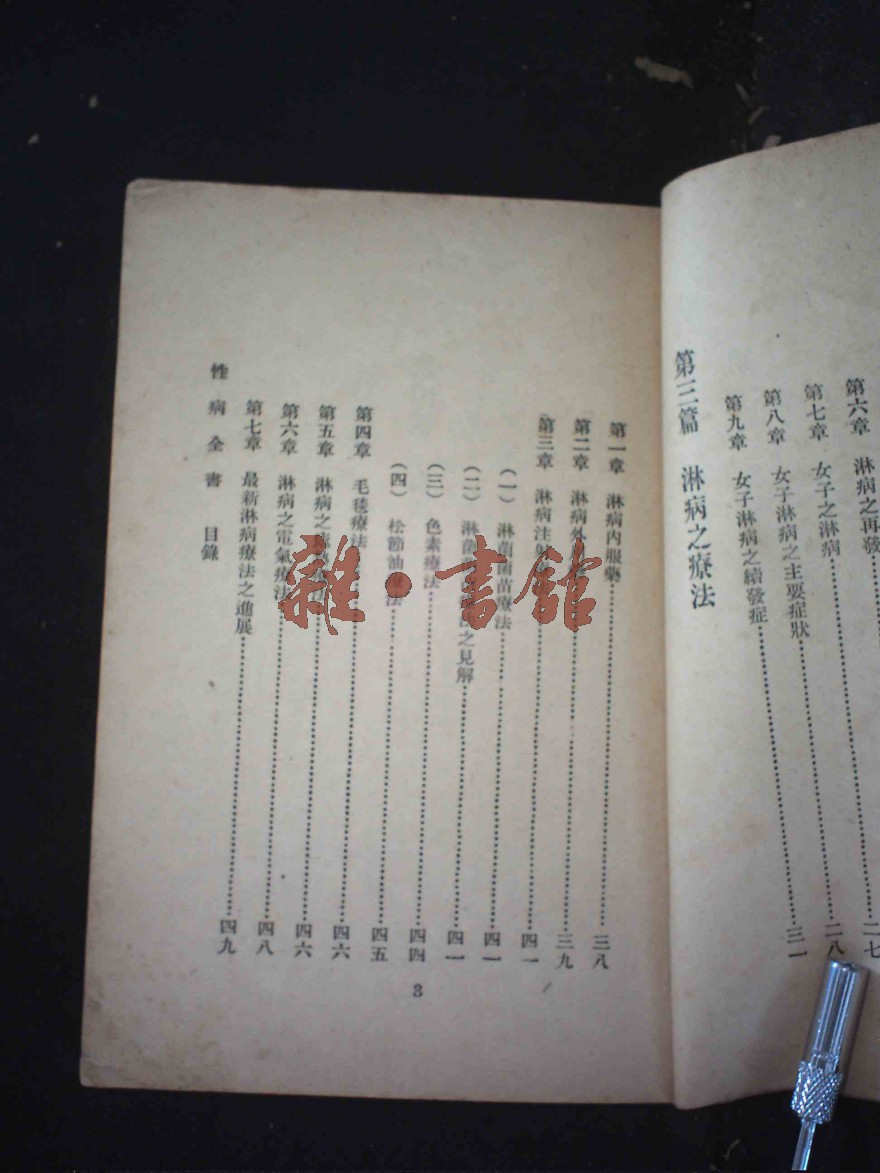 第六章 淋病之再發
第七章 女子之淋病……二七
第八章 女子淋病之主要症狀……二八
第九章 女子淋病之續發症……三一
第三篇 淋病之療法
第一章 淋病內服藥……三八
第二章 淋病外……三九
第三章 淋病注射……四一
(一) 淋菌菌苗療法……四一
(二) 淋菌 之見解……四一
(三) 色素療法……四四
(四) 松節油療法……四五
第四章 毛毯療法……四六
第五章 淋病之 療法……四六
第六章 淋病之電氣療法……四八
第七章 最新淋病療法之進展……四九
性病全書 目錄
3
雜·書館